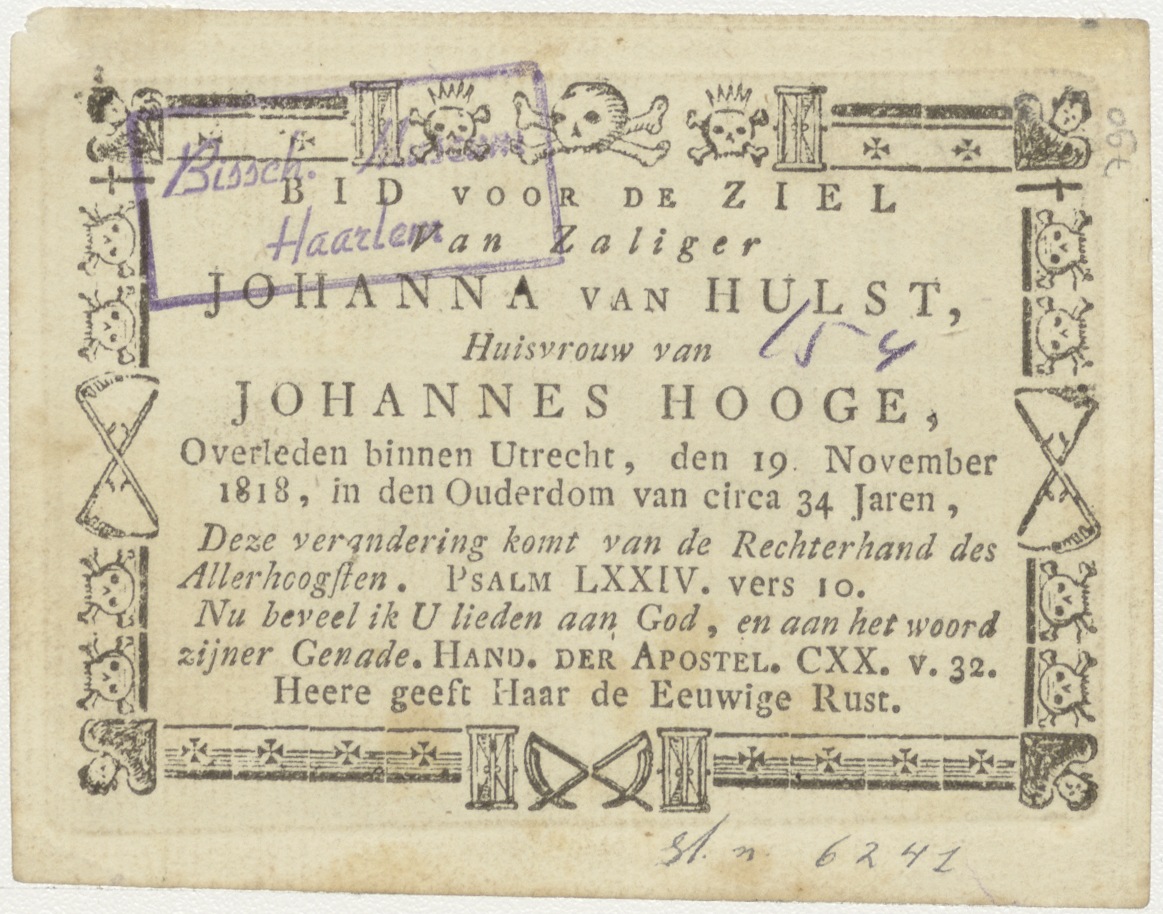 Bissch. Museum
Haarlem
BID VOOR DE ZIEL
Van Zaliger
JOHANNA VAN HULST,
Huisvrouw van
154
JOHANNES HOOGE,
Overleden binnen Utrecht, den 19. November
1818, in den Ouderdom van circa 34 Jaren,
Deze verandering komt van de Rechterhand des
Allerhoogſten. PSALM LXXIV. vers 10.
Nu beveel ik U lieden aan God, en aan het woord
zijner Genade. HAND. DER APOSTEL. CXX. v. 32.
Heere geeft Haar de Eeuwige Rust.
6241